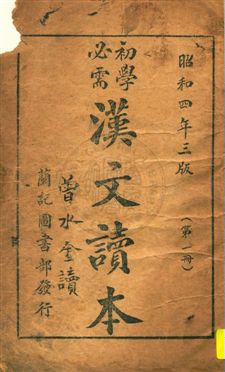 昭和四年三版
(第一冊)
初學
必需
漢文讀本
曾水金讀
蘭記圖書部發行